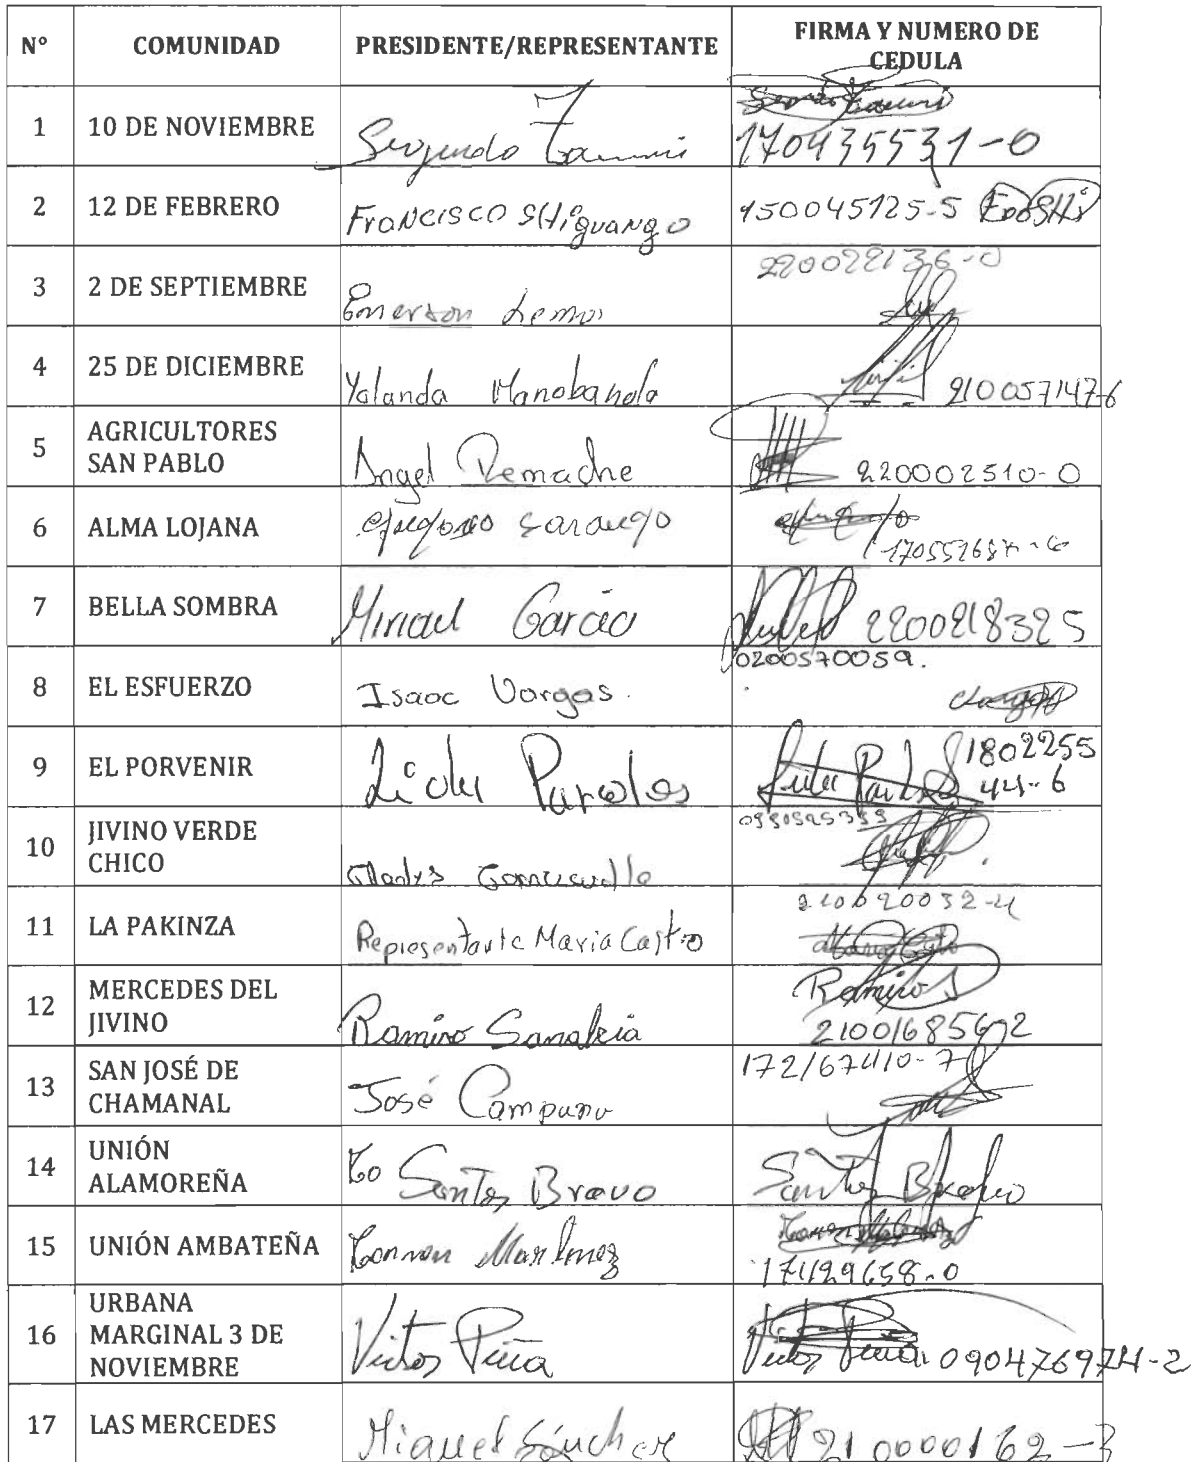 N° COMUNIDAD PRESIDENTE/REPRESENTANTE FIRMA Y NUMERO DE CEDULA
1 10 DE NOVIEMBRE Segundo 170435531-0
2 12 DE FEBRERO Francisco SHiguango 150045125-5
3 2 DE SEPTIEMBRE Emerson Lemos 220022136-0
4 25 DE DICIEMBRE Yolanda Manobanda 210057147-6
5 AGRICULTORES SAN PABLO Angel Remache 220002510-0
6 ALMA LOJANA
7 BELLA SOMBRA García 2200218325
8 EL ESFUERZO Isaac Vargas. 0200570059.
9 EL PORVENIR 180225544-6
10 JIVINO VERDE CHICO Gladys
11 LA PAKINZA Representante Maria Castro
12 MERCEDES DEL JIVINO Ramiro Sanabria Ramiro S
13 SAN JOSÉ DE CHAMANAL José 172167410-7
14 UNIÓN ALAMOREÑA Santos Bravo Santos Bravo
15 UNIÓN AMBATEÑA Carmen Martinez 171129658-0
16 URBANA MARGINAL 3 DE NOVIEMBRE Victor Piña Victor Piña 090476974-2
17 LAS MERCEDES Miguel Sánchez 210000162-3